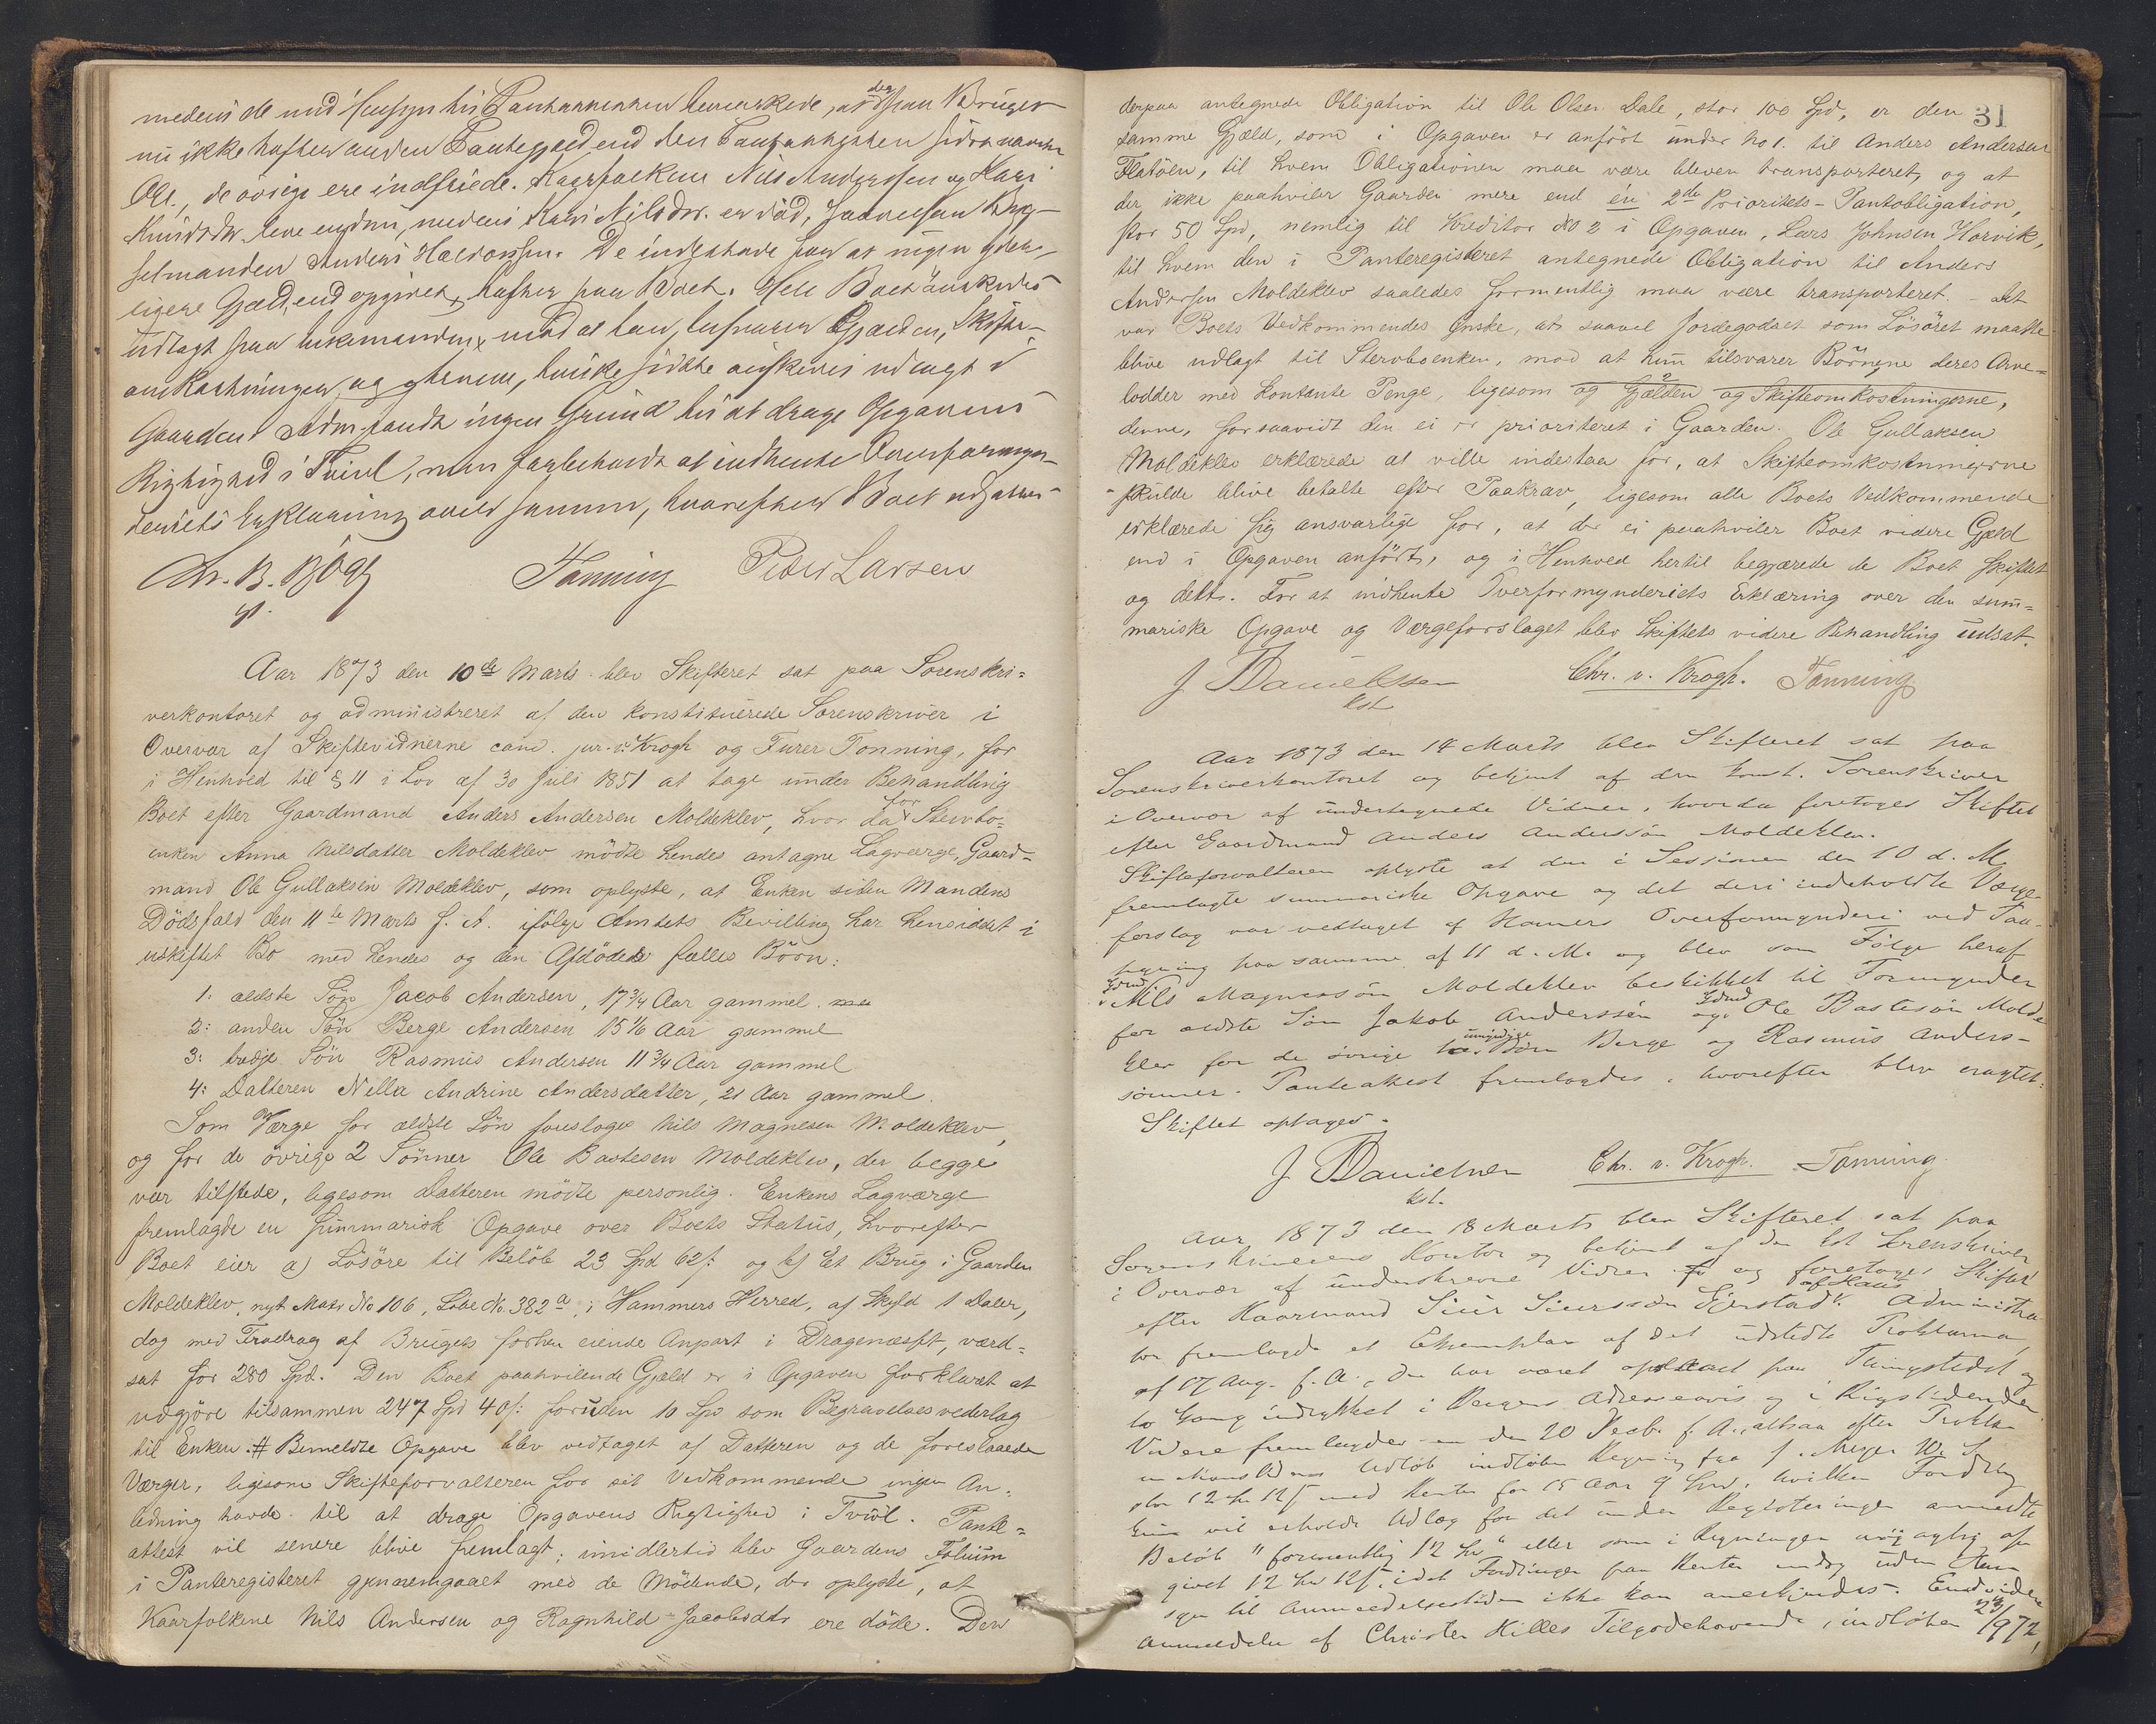 medens de med Hensyn til Panteattesten bemærkede, at der paa Bruget
nu ikke hefter anden Pantegjæld end den i Panteattesten sidst nævnte
Obl., de øvrige ere indfriede. Kaarfolkene Nils Anderssen og Kari
Knudsdtr. leve endnu, medens Kari Nilsdtr. er død,
selmanden Anders Haldorssen. De indestaae for at ingen yder-
ligere Gjæld, end opgivet, hefter paa Boet. Hele Boet ønskedes
udlagt paa Enkemanden, mod at han tilsvarer Gjælden, Skifte-
omkostninger og Arvene, hvilke sidste ønskedes udlagt i
Gaarden. Adm. fandt ingen Grund til at drage Opgavens
Rigtighed i Tvivl, men forbeholdt at indhente Overformyn-
deriets Erklæring over samme, hvorefter Boet udsattes.
Chr. B. Bøgh Tonning Peder Larsen
Aar 1873 den 10de Marts blev Skifteret sat paa Sorenskri=
verkontoret og administreret af den konstituerede Sorenskriver i
Overvær af Skiftevidnerne cand. jur. v. Krogh og Furer Tonning, for
i Henhold til § 11 i Lov af 30 Juli 1851 at tage under Behandling
Boet efter Gaardmand Anders Andersen Moldeklev, hvor da for Stervbo=
enken Anna Nilsdatter Moldeklev mödte hendes antagne Lagværge, Gaard=
mand Ole Gullaksen Moldeklev, som oplyste, at Enken siden Mandens
Dödsfald den 11te Marts f. A. ifölge Amtets Bevilling har hensiddet i
uskiftet Bo med hendes og den Afdödes fælles Börn:
1: ældste Sön Jacob Andersen, 17 3/4 Aar gammel.
2: anden Sön Berge Andersen 15 1/6 Aar gammel
3: tredje Sön Rasmus Andersen 11 3/4 Aar gammel
4: Datteren Nella Andrine Andersdatter, 21 Aar gammel.
Som Værge for ældste Sön foresloges Nils Magnesen Moldeklev,
og for de övrige 2 Sönner Ole Bastesen Moldeklev, der begge
var tilstede, ligesom Datteren mödte personlig. Enkens Lagværge
fremlagde en summarisk Opgave over Boets Status, hvorefter
Boet eier a) Lösöre til Belöb 23 Spd 62 ß og b) Et Brug i Gaarden
Moldeklev, nyt Matr No 106, Löbe No. 382a, i Hammers Herred, af Skyld 1 Daler,
dog med Fradrag af Brugets forhen eiende Anpart i Dragenæsset, værd=
sat for 280 Spd. Den Boet paahvilende Gjæld er i Opgaven forklaret at
udgjöre tilsammen 247 Spd 40 ß: foruden 10 Spd som Begravelsesvederlag
til Enken. # Bemeldte Opgave blev vedtaget af Datteren og de foreslaaede
Værger, ligesom Skifteforvalteren for sit Vedkommende ingen An=
ledning havde til at drage Opgavens Rigtighed i Tvivl. Pante=
attest vil senere blive fremlagt; imidlertid blev Gaardens Folium
i Panteregisteret gjennemgaaet med de Mödende, der oplyste, at
Kaarfolkene Nils Andersen og Ragnhild Jacobsdtr ere döde. Den
31
derpaa antegnede Obligation til Ole Olsen Dale, stor 100 Spd, er den
samme Gjæld, som i Opgaven er anfört under No 1. til Anders Andersen
Flatöen, til hvem Obligationen maa være bleven transporteret, og at
der ikke paahviler Gaarden mere end én 2den Prioritets-Pantobligation,
stor 50 Spd, nemlig til Kreditor No 2 i Opgaven, Lars Johnsen Horvik,
til hvem den i Panteregisteret antegnede Obligation til Anders
Andersen Moldeklev saaledes formentlig maa være transporteret. – Det
var Boets Vedkommendes Önske, at saavel Jordegodset som Lösöret maatte
blive udlagt til Stervboenken, mod at hun tilsvarer Börnene deres Arve=
lodder med kontante Penge, ligesom og Gjælden og Skifteomkostningerne,
denne, forsaavidt den ei er prioriteret i Gaarden. Ole Gullaksen
Moldeklev erklærede at ville indestaa for, at Skifteomkostningerne
skulde blive betalte efter Paakrav, ligesom alle Boets Vedkommende
erklærede sig ansvarlige for, at der ei paahviler Boet videre Gjæld
end i Opgaven anfört, og i Henhold hertil begjærede de Boet skiftet
og delt. For at indhente Overformynderiets Erklæring over den sum=
mariske Opgave og Værgeforslaget blev Skiftets videre Behandling udsat.
J Danielssen kst Chr. v. Krogh. Tonning
Aar 1873 den 18 Marts blev Skifteret sat paa
Sorenskriverkontoret og betjent af den konst. Sorenskriver
i Overvær af undertegnede Vidner, hvorda foretoges Skiftet
efter Gaardmand Anders Anderssön Moldeklev.
Skifteforvalteren oplyste at den i Sessionen den 10 d. M.
fremlagte summariske Opgave og det deri indeholdte Værge-
forslag var vedtaget af Hamers Overformynderi ved Paa-
tegning paa samme af 11 d. M. og blev som Fölge heraf
Nils Magnessön Moldeklev beskikket til Formynder
for ældste Sön Jakob Anderssön og Ole Bastesön Molde
klev for de övrige umyndige Börn Berge og Rasmus Anders-
sönner. Panteattest fremlagdes, hvorefter blev eragtet:
Skiftet optages.
J Danielssen kst. Chr. v. Krogh. Tonning.
Aar 1873 den 18 Marts blev Skifteret sat paa
Sorenskriverens Kontor og betjent af den kst Sorenskriver
i Overvær af underskrevne Vidner og foretoges Skiftet
efter Kaarmand Siur Siurssön Gjerstad af Haus. Administra
tor fremlagde et Exemplar af det udstedte Proklama
af 17 Aug. f. A., der har været oplæst paa Thingstedet og
to Gang indrykket i Bergens Adresseavis og i Rigstidenden.
Videre fremlagdes en den 20 Decb. f. A., altsaa efter Prokla
Udlöb indlöben Regning fra
stor 12 ß med Renter for 15 Aar 9 Spd., hvilken Fordring
vil erholde Udlæg for det under Registeringen anmeldte
Belöb "formentlig 12 " eller som i Regningen
givet 12 12 ß, idet Fordringen paa Renter uden
til Anmeldelsestiden ikke kan anerkjendes. Endvidere
Anmeldelse af Christen Hilles Tilgodehavende, indlöben 23/9 72,